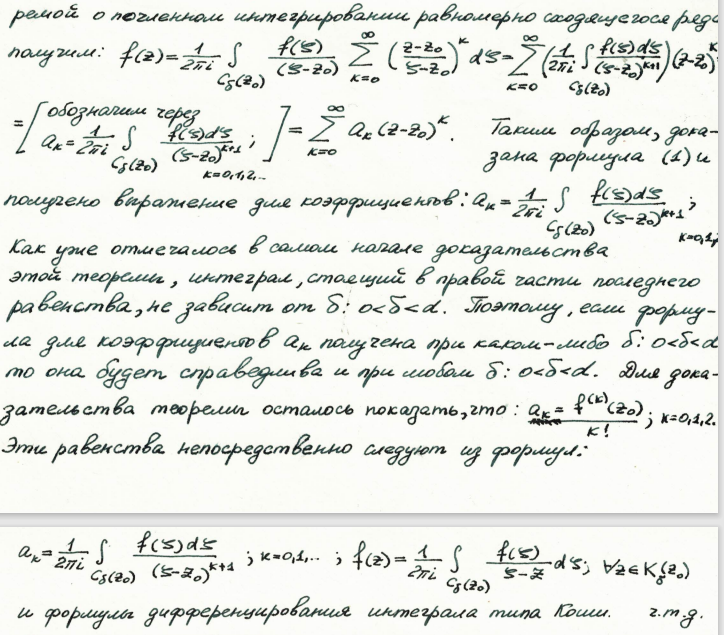 ремой о почленном интегрировании равномерно сходящегося ряда
получим: f(z) = \frac{1}{2πi} ∫_{C_δ(z₀)} \frac{f(ζ)}{(ζ-z₀)} \sum_{k=0}^{∞} (\frac{z-z₀}{ζ-z₀})^k dζ = \sum_{k=0}^{∞} (\frac{1}{2πi} ∫_{C_δ(z₀)} \frac{f(ζ)dζ}{(ζ-z₀)^{k+1}}) (z-z₀)^k
= [обозначим через a_k = \frac{1}{2πi} ∫_{C_δ(z₀)} \frac{f(ζ)dζ}{(ζ-z₀)^{k+1}}; k=0,1,2,..] = \sum_{k=0}^{∞} a_k (z-z₀)^k. Таким образом, дока-
зана формула (1) и
получено выражение для коэффициентов: a_k = \frac{1}{2πi} ∫_{C_δ(z₀)} \frac{f(ζ)dζ}{(ζ-z₀)^{k+1}}; k=0,1,
Как уже отмечалось в самом начале доказательства
этой теоремы, интеграл, стоящий в правой части последнего
равенства, не зависит от δ: 0<δ<d. Поэтому, если форму-
ла для коэффициентов a_k получена при каком-либо δ: 0<δ<d
то она будет справедлива и при любом δ: 0<δ<d. Для дока-
зательства теоремы осталось показать, что: a_k = \frac{f^{(k)}(z₀)}{k!}; k=0,1,2.
Эти равенства непосредственно следуют из формул:
a_k = \frac{1}{2πi} ∫_{C_δ(z₀)} \frac{f(ζ)dζ}{(ζ-z₀)^{k+1}}; k=0,1,.. ; f(z) = \frac{1}{2πi} ∫_{C_δ(z₀)} \frac{f(ζ)}{ζ-z} dζ; ∀z∈K_δ(z₀)
и формулы дифференцирования интеграла типа Коши. ч.т.д.